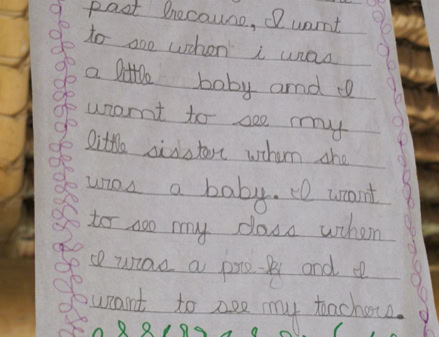 past because, I want
to see when i was
a little baby and I
want to see my
little sisster when she
was a baby. I want
to see my class when
I was a pre-k and I
want to see my teachers.